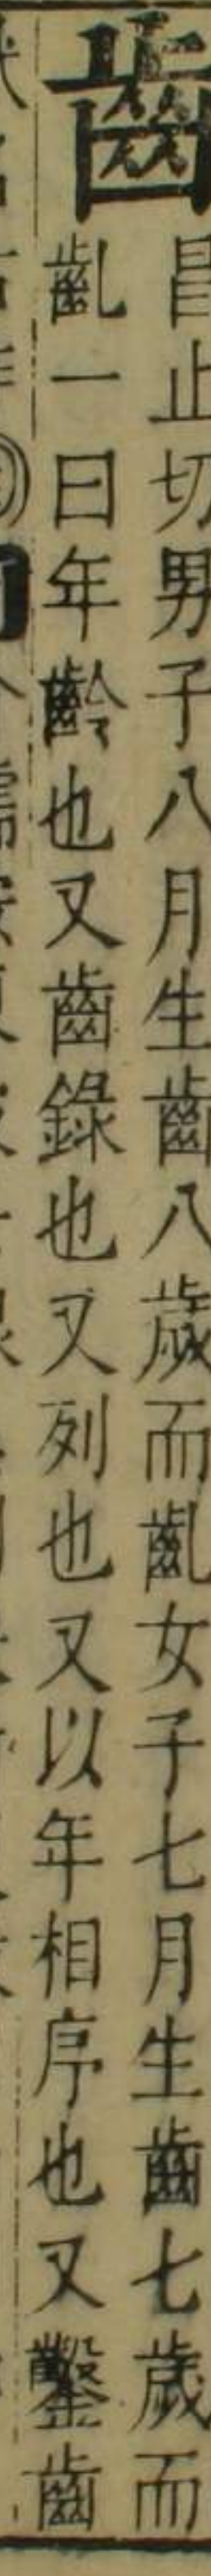 齒
昌止切男子八月生齒八歲而齔女子七月生齒七歲而
齔一曰年齡也又齒錄也又列也又以年相序也又鑿齒